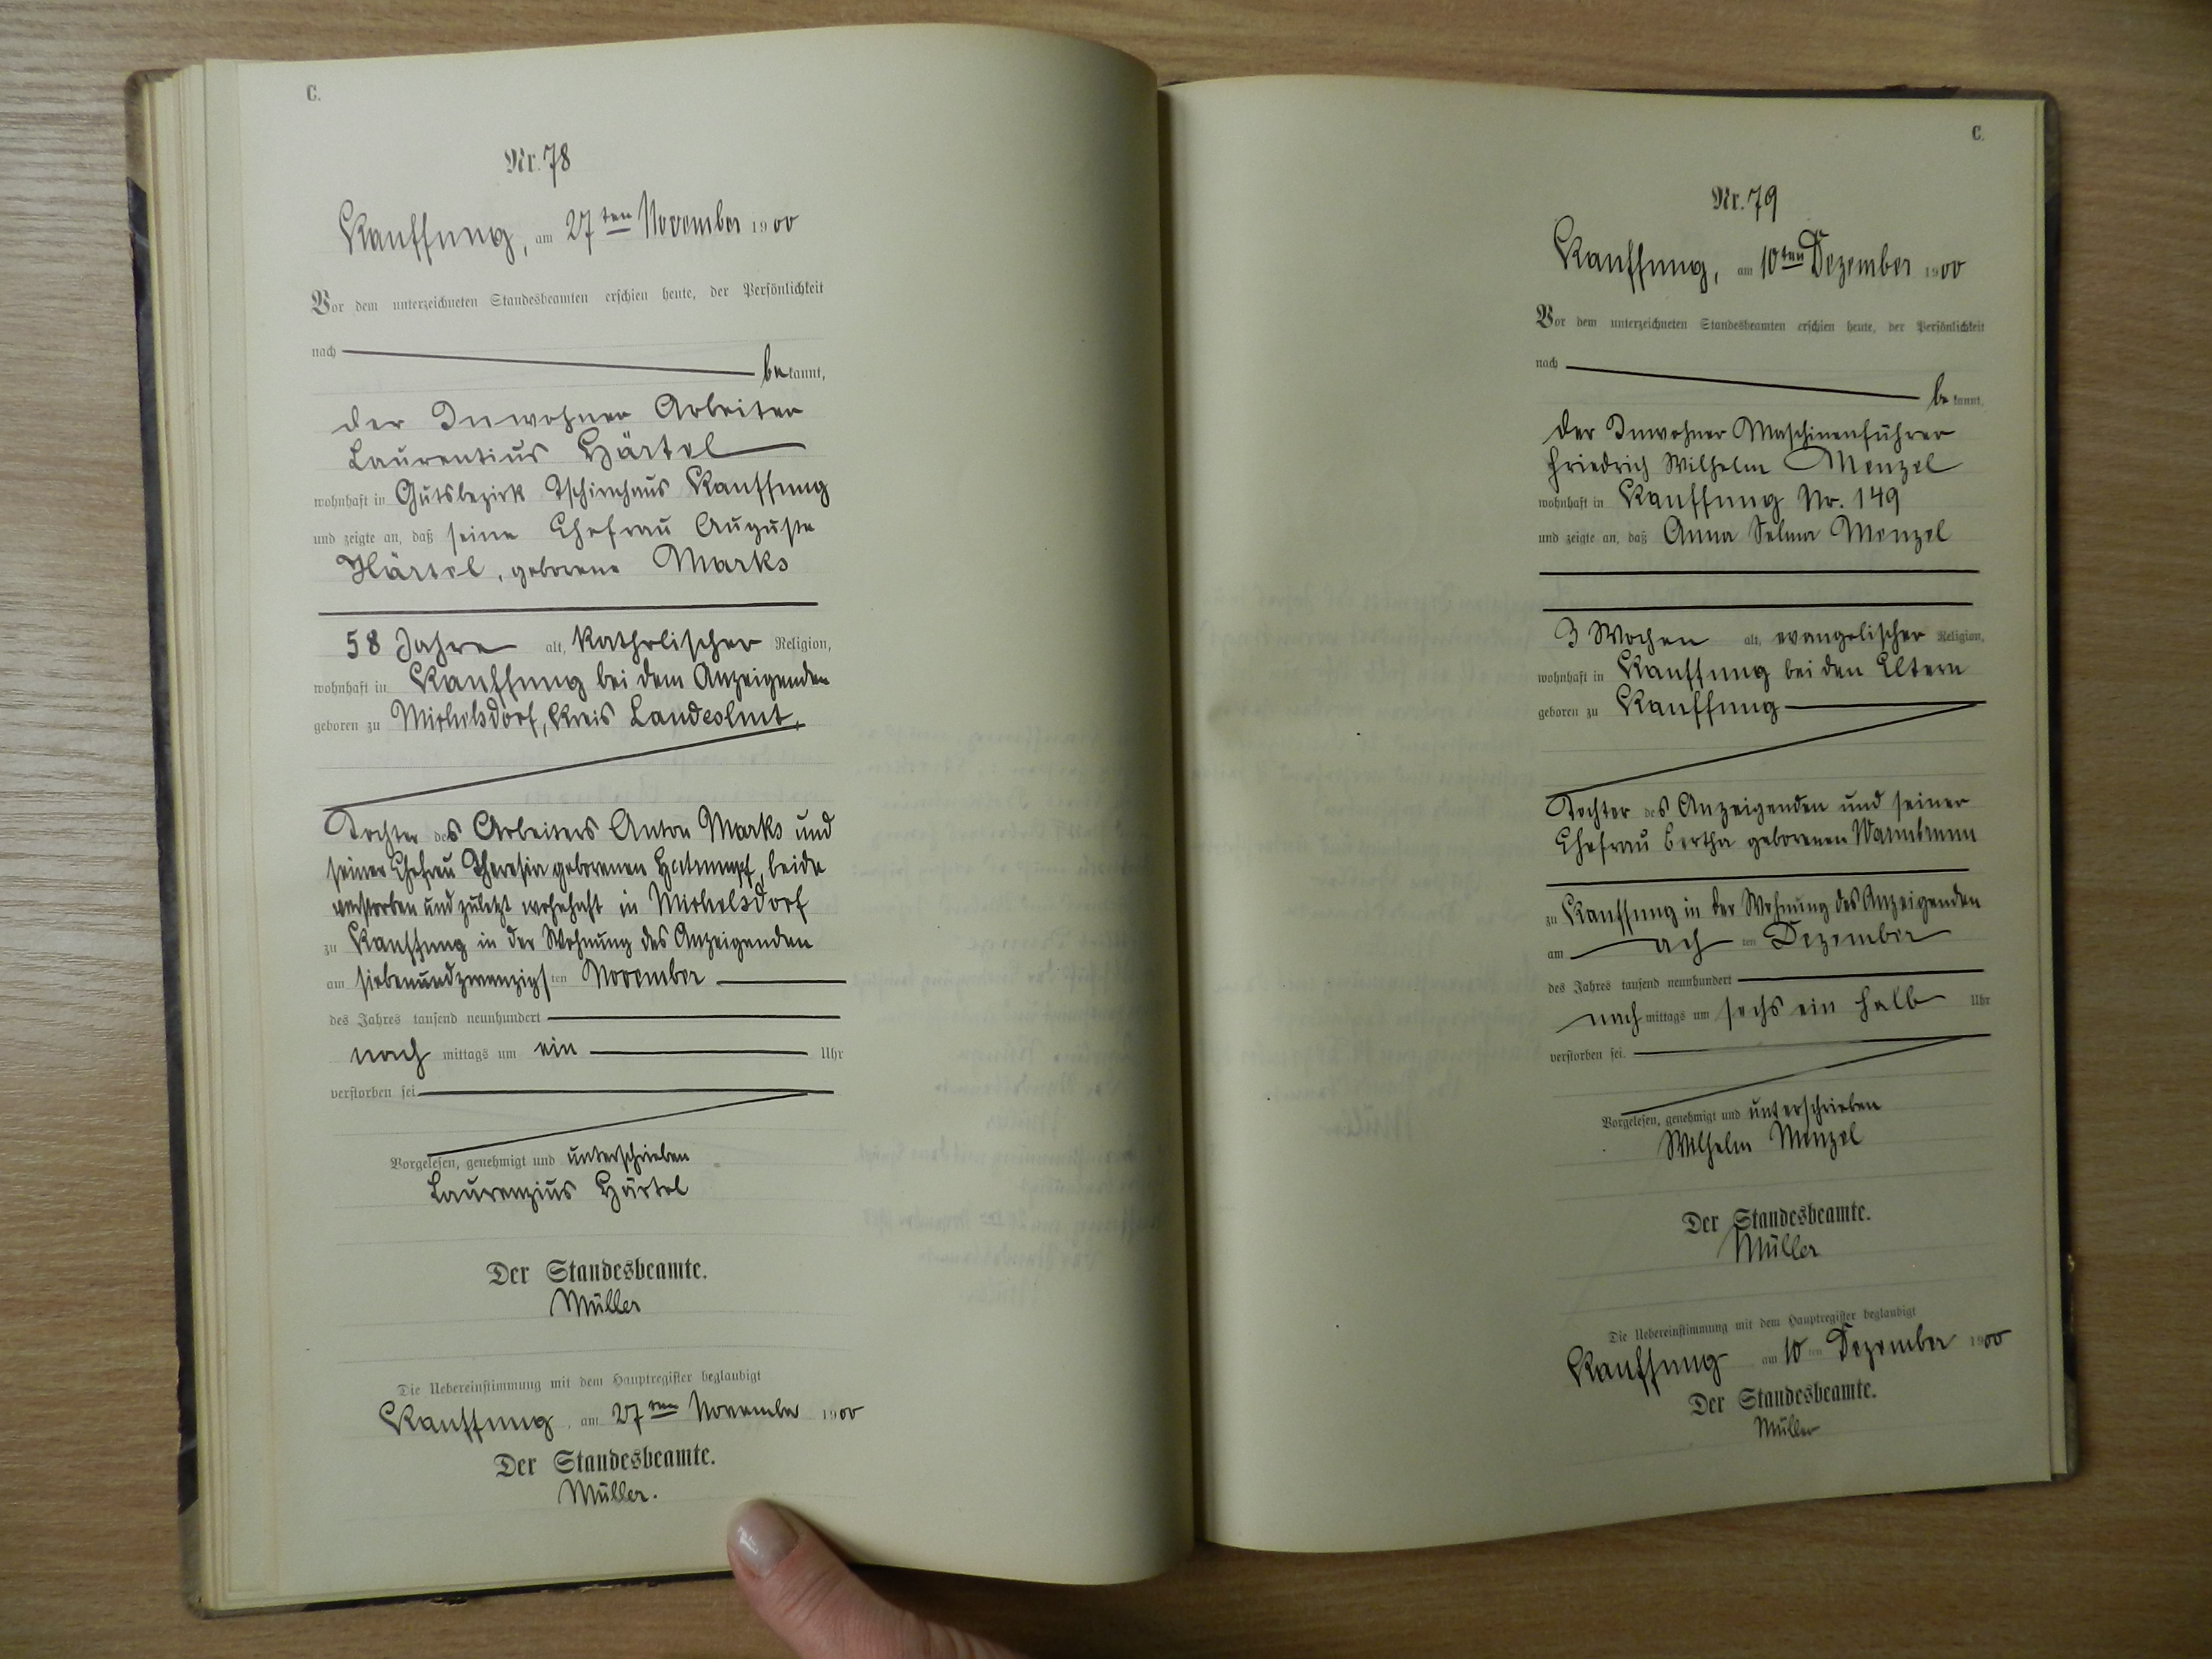 C.
Nr. 78
Kauffung, am 27ten November 1900
Vor dem unterzeichneten Standesbeamten erschien heute, der Persönlichkeit
nach bekannt,
der Inwohner Arbeiter
Laurentius Härtel
wohnhaft in Gutsbezirk Tschirnhaus Kauffung
und zeigte an, daß seine Ehefrau Auguste
Härtel, geborene Marks
58 Jahre alt, katholischer Religion,
wohnhaft in Kauffung bei dem Anzeigenden
geboren zu Michelsdorf, Kreis Landeshut,
Tochter des Arbeiters Anton Marks und
seiner Ehefrau Theresia geborenen beide
verstorben und zuletzt wohnhaft in Michelsdorf
zu Kauffung in der Wohnung des Anzeigenden
am siebenundzwanzigsten November
des Jahres tausend neunhundert
nach mittags um ein Uhr
verstorben sei.
Vorgelesen, genehmigt und unterschrieben
Laurenzius Härtel
Der Standesbeamte.
Müller
Die Uebereinstimmung mit dem Hauptregister beglaubigt
Kauffung, am 27ten November 1900
Der Standesbeamte.
Müller.
C.
Nr. 79
Kauffung, am 10ten Dezember 1900
Vor dem unterzeichneten Standesbeamten erschien heute, der Persönlichkeit
nach bekannt,
der Inwohner Maschinenführer
Friedrich Wilhelm Menzel
wohnhaft in Kauffung Nr. 149
und zeigte an, daß Anna Selma Menzel
3 Wochen alt, evangelischer Religion,
wohnhaft in Kauffung bei den Eltern
geboren zu Kauffung
Tochter des Anzeigenden und seiner
Ehefrau Bertha geborenen Warmbrunn
zu Kauffung in der Wohnung des Anzeigenden
am ach ten Dezember
des Jahres tausend neunhundert
nach mittags um sechs ein halb Uhr
verstorben sei.
Vorgelesen, genehmigt und unterschrieben
Wilhelm Menzel
Der Standesbeamte.
Müller
Die Uebereinstimmung mit dem Hauptregister beglaubigt
Kauffung am 10 ten Dezember 1900
Der Standesbeamte.
Müller